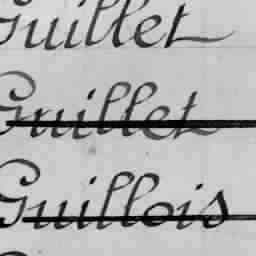 Guillet
Guillet
Guillois